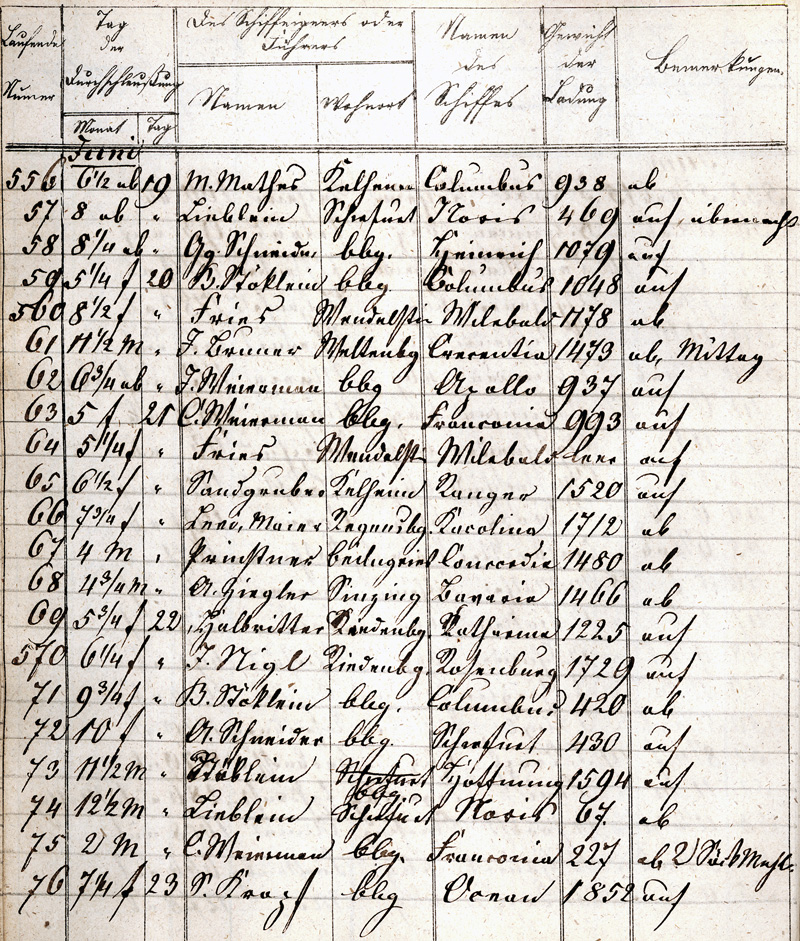 Laufende Numer
Tag der Durchschleußung
Des Schiffeigners oder Führers
Namen des Schiffes
Gewicht der Ladung
Bemerkungen.
Monat Tag
Namen Wohnort
Juni
556 6½ ab 19 M. Mathes Kelheim Columbus 938 ab
57 8 ab " Lieblein Schwfurt Noris 469 auf, übernacht
58 8¼ ab " Gg. Schneider bbg. Heinrich 1079 auf
59 5¼ f 20 B. Stöklein bbg Columbus 1048 auf
560 8½ f " Fries Wendelstein Wilebald 1178 ab
61 11½ M " J. Bruner Weltenbg Crecentia 1473 ab, Mittag
62 6¾ ab " J. Weierman bbg Apollo 937 auf
63 5 f 21 C. Weierman bbg. Franconia 993 auf
64 5¼ f " Fries Wendelst Wilebald leer auf
65 6½ f " Sandgruber Kelheim Ranger 1520 auf
66 7¾ f " Leod, Maier Regensbg. Karolina 1712 ab
67 4 M " Beilngries Concordia 1480 ab
68 4¾ M " A. Ziegler Sinzing Bavaria 1466 ab
69 5¾ f 22 Halbritter Riedenbg. Katharina 1225 auf
570 6¼ f " J. Nigl Riedenbg. Rosenburg 1729 auf
71 9¾ f " B. Stöklein bbg. Columbus 420 ab
72 10 f " A. Schneider bbg. Schwfurt 430 auf
73 11½ M " Stöklein Schwfurt bbg Hoffnung 1594 auf
74 12½ M " Lieblein Schwfurt Noris 67. ab
75 2 M " C. Weierman bbg. Franconia 227 ab 2 Säck Mehl.
76 7¼ f 23 S. Kropf bbg Ocean 1852 auf